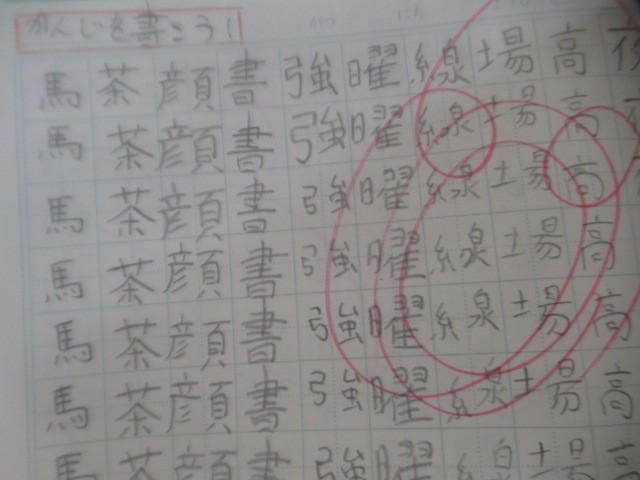 かんじを書こう!
馬茶顔書強曜線場高夜
馬茶顔書強曜線場高
馬茶顔書強曜線場高
馬茶顔書強曜線場高
馬茶顔書強曜線場高
馬茶顔書強曜線場高
馬茶顔書強曜線場高